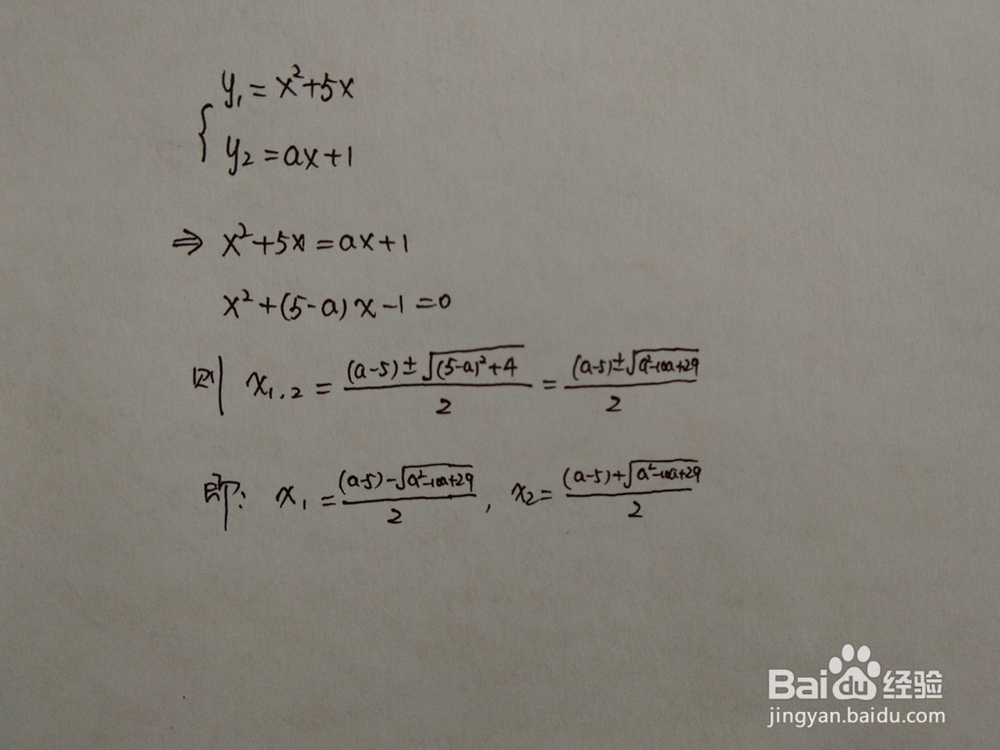 y₁ = x²+5x
y₂ = ax+1
⇒ x²+5x = ax+1
x²+(5-a)x-1=0
则 x₁,₂ = ((a-5)±√((5-a)²+4))/2 = ((a-5)±√(a²-10a+29))/2
即: x₁ = ((a-5)-√(a²-10a+29))/2, x₂ = ((a-5)+√(a²-10a+29))/2
Baidu经验
jingyan.baidu.com